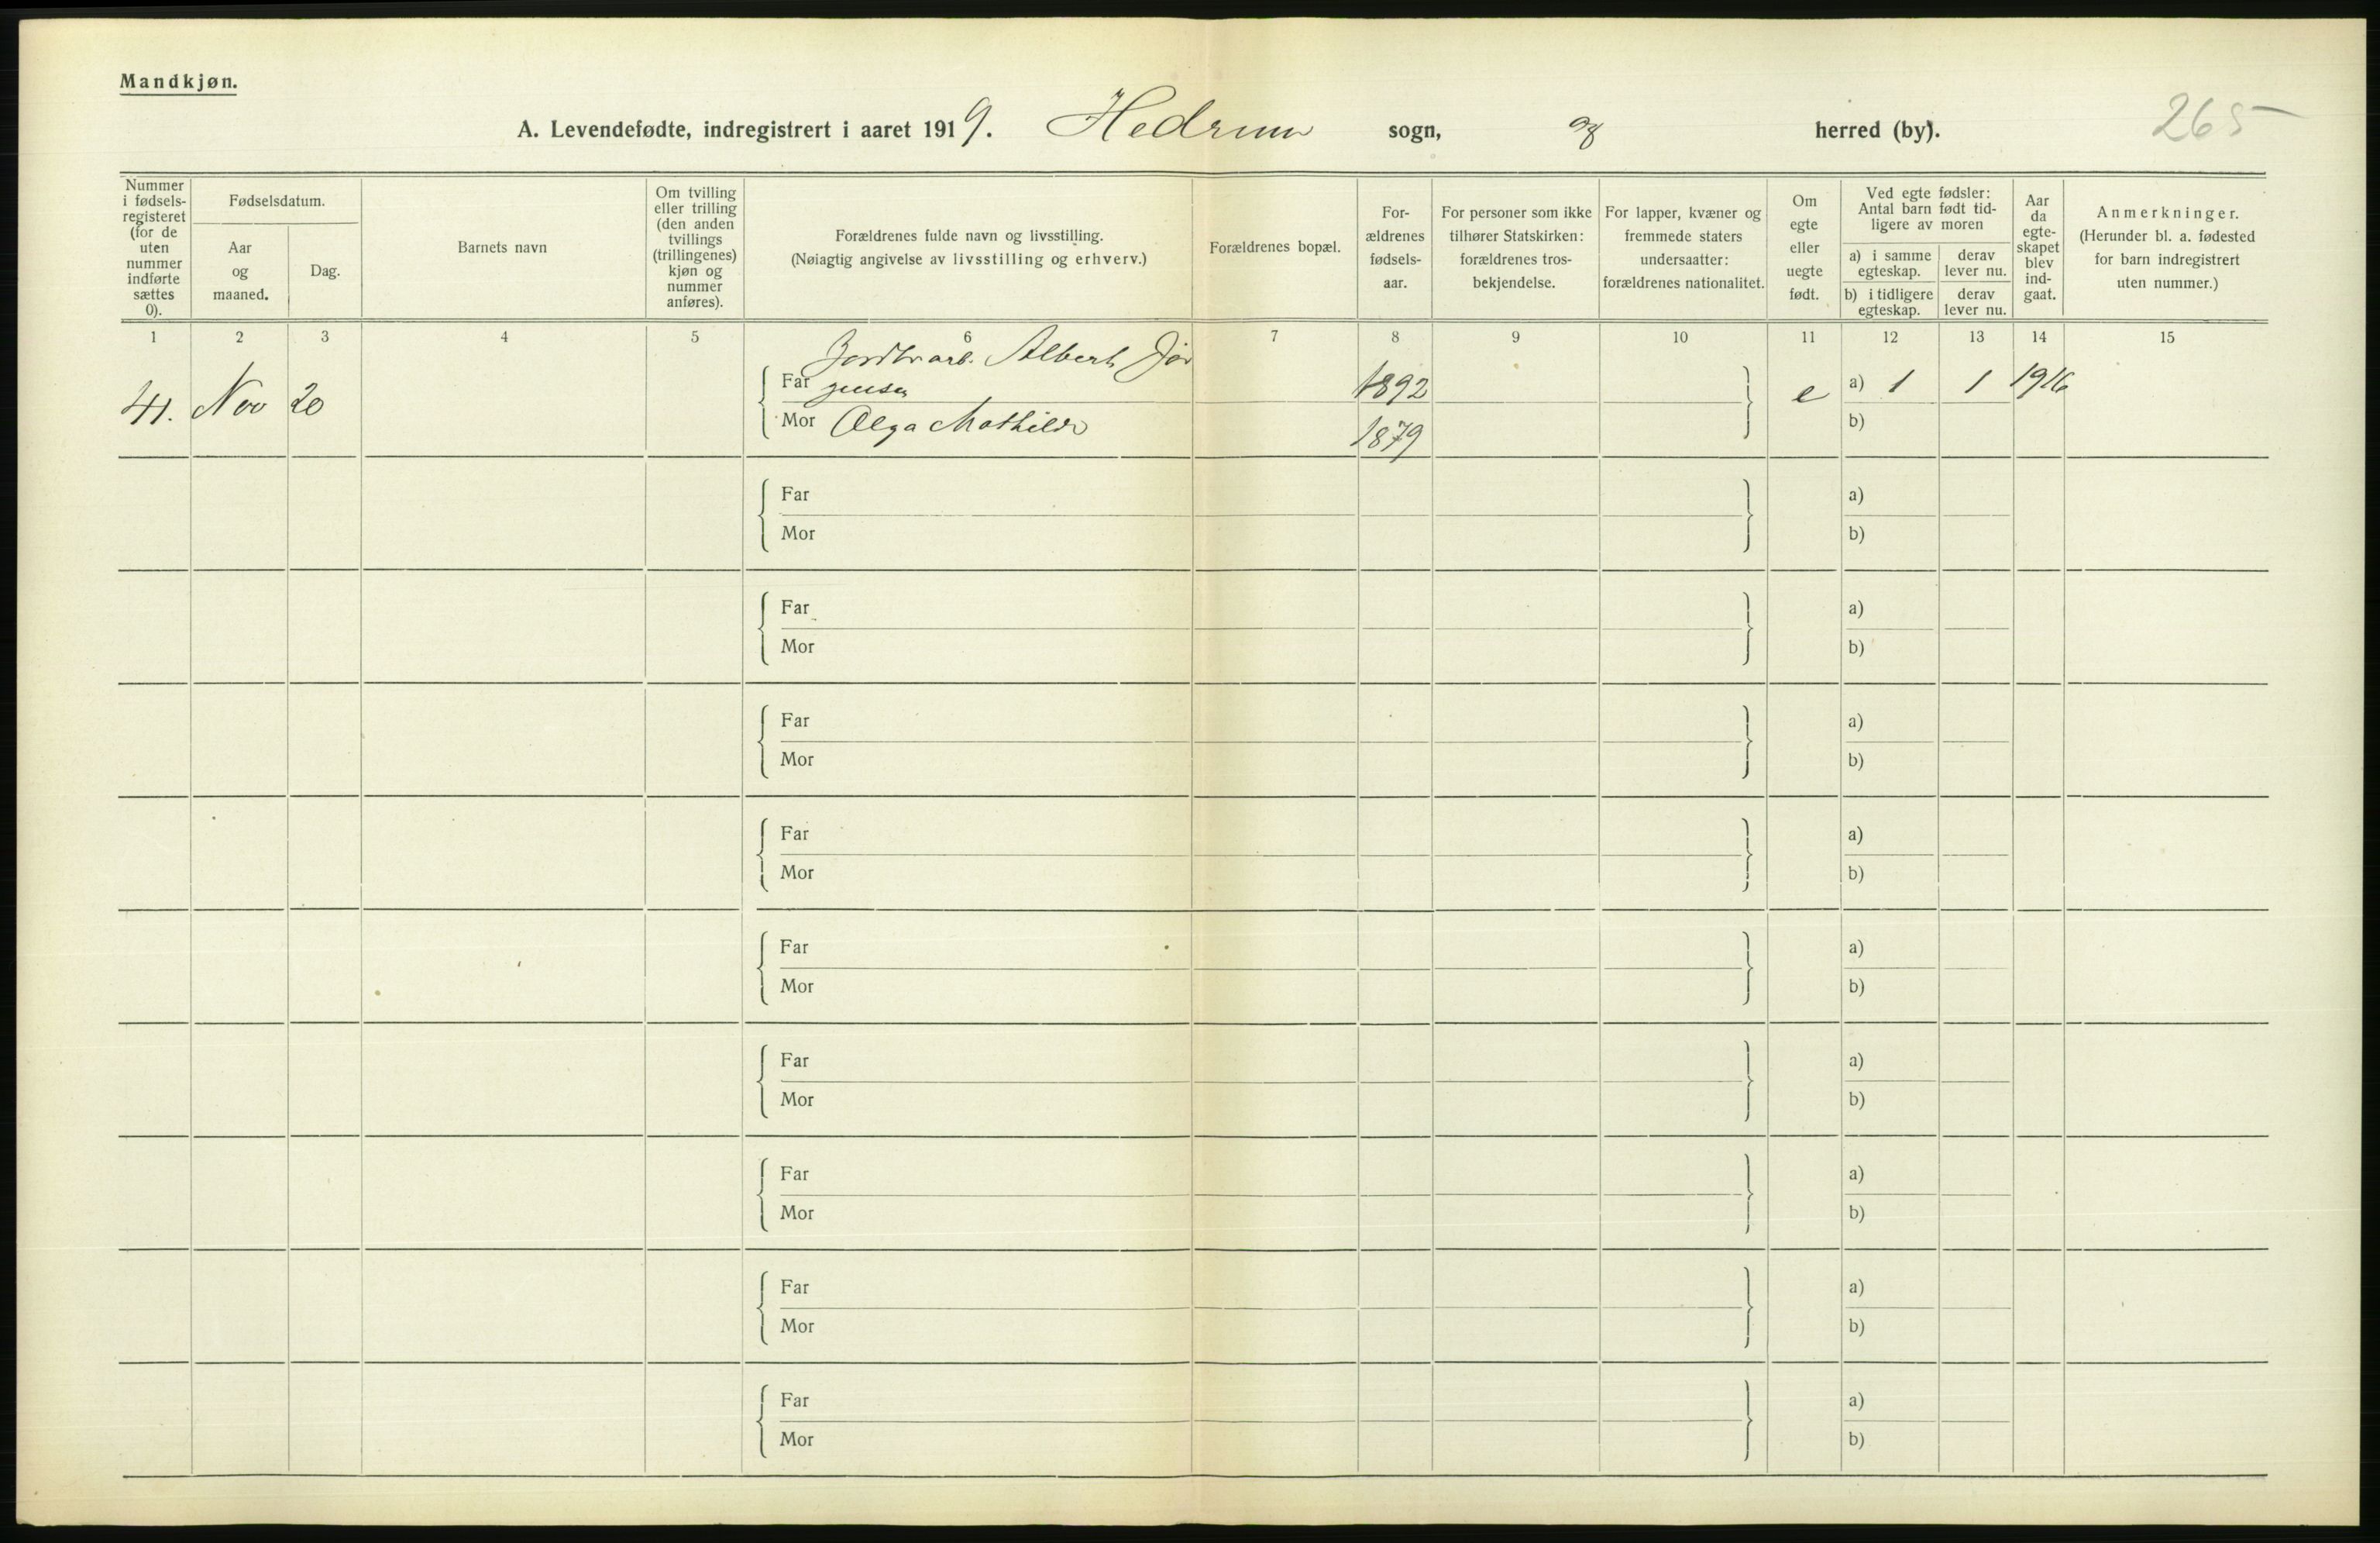 Mandkjøn.
A. Levendefødte, indregistrert i aaret 1919. Hedrum sogn, og herred (by). 265
Nummer i fødsels-registeret (for de uten nummer indførte sættes 0).
Fødselsdatum.
Aar og maaned.
Dag.
Barnets navn
Om tvilling eller trilling (den anden tvillings (trillingenes) kjøn og nummer anføres).
Forældrenes fulde navn og livsstilling.
(Nøiagtig angivelse av livsstilling og erhverv.)
Forældrenes bopæl.
For-ældrenes fødsels-aar.
For personer som ikke tilhører Statskirken: forældrenes tros-bekjendelse.
For lapper, kvæner og fremmede staters undersaatter: forældrenes nationalitet.
Om egte eller uegte født.
Ved egte fødsler: Antal barn født tid-ligere av moren
a) i samme egteskap.
derav lever nu.
b) i tidligere egteskap.
derav lever nu.
Aar da egte-skapet blev ind-gaat.
Anmerkninger.
(Herunder bl. a. fødested for barn indregistrert uten nummer.)
1 2 3 4 5 6 7 8 9 10 11 12 13 14 15
Jordbr arb. Albert Jør
41. Nov 20 Far gensen 1892 e a) 1 1 1916
Mor Olga Mathilde 1879 b)
Far a)
Mor b)
Far a)
Mor b)
Far a)
Mor b)
Far a)
Mor b)
Far a)
Mor b)
Far a)
Mor b)
Far a)
Mor b)
Far a)
Mor b)
Far a)
Mor b)